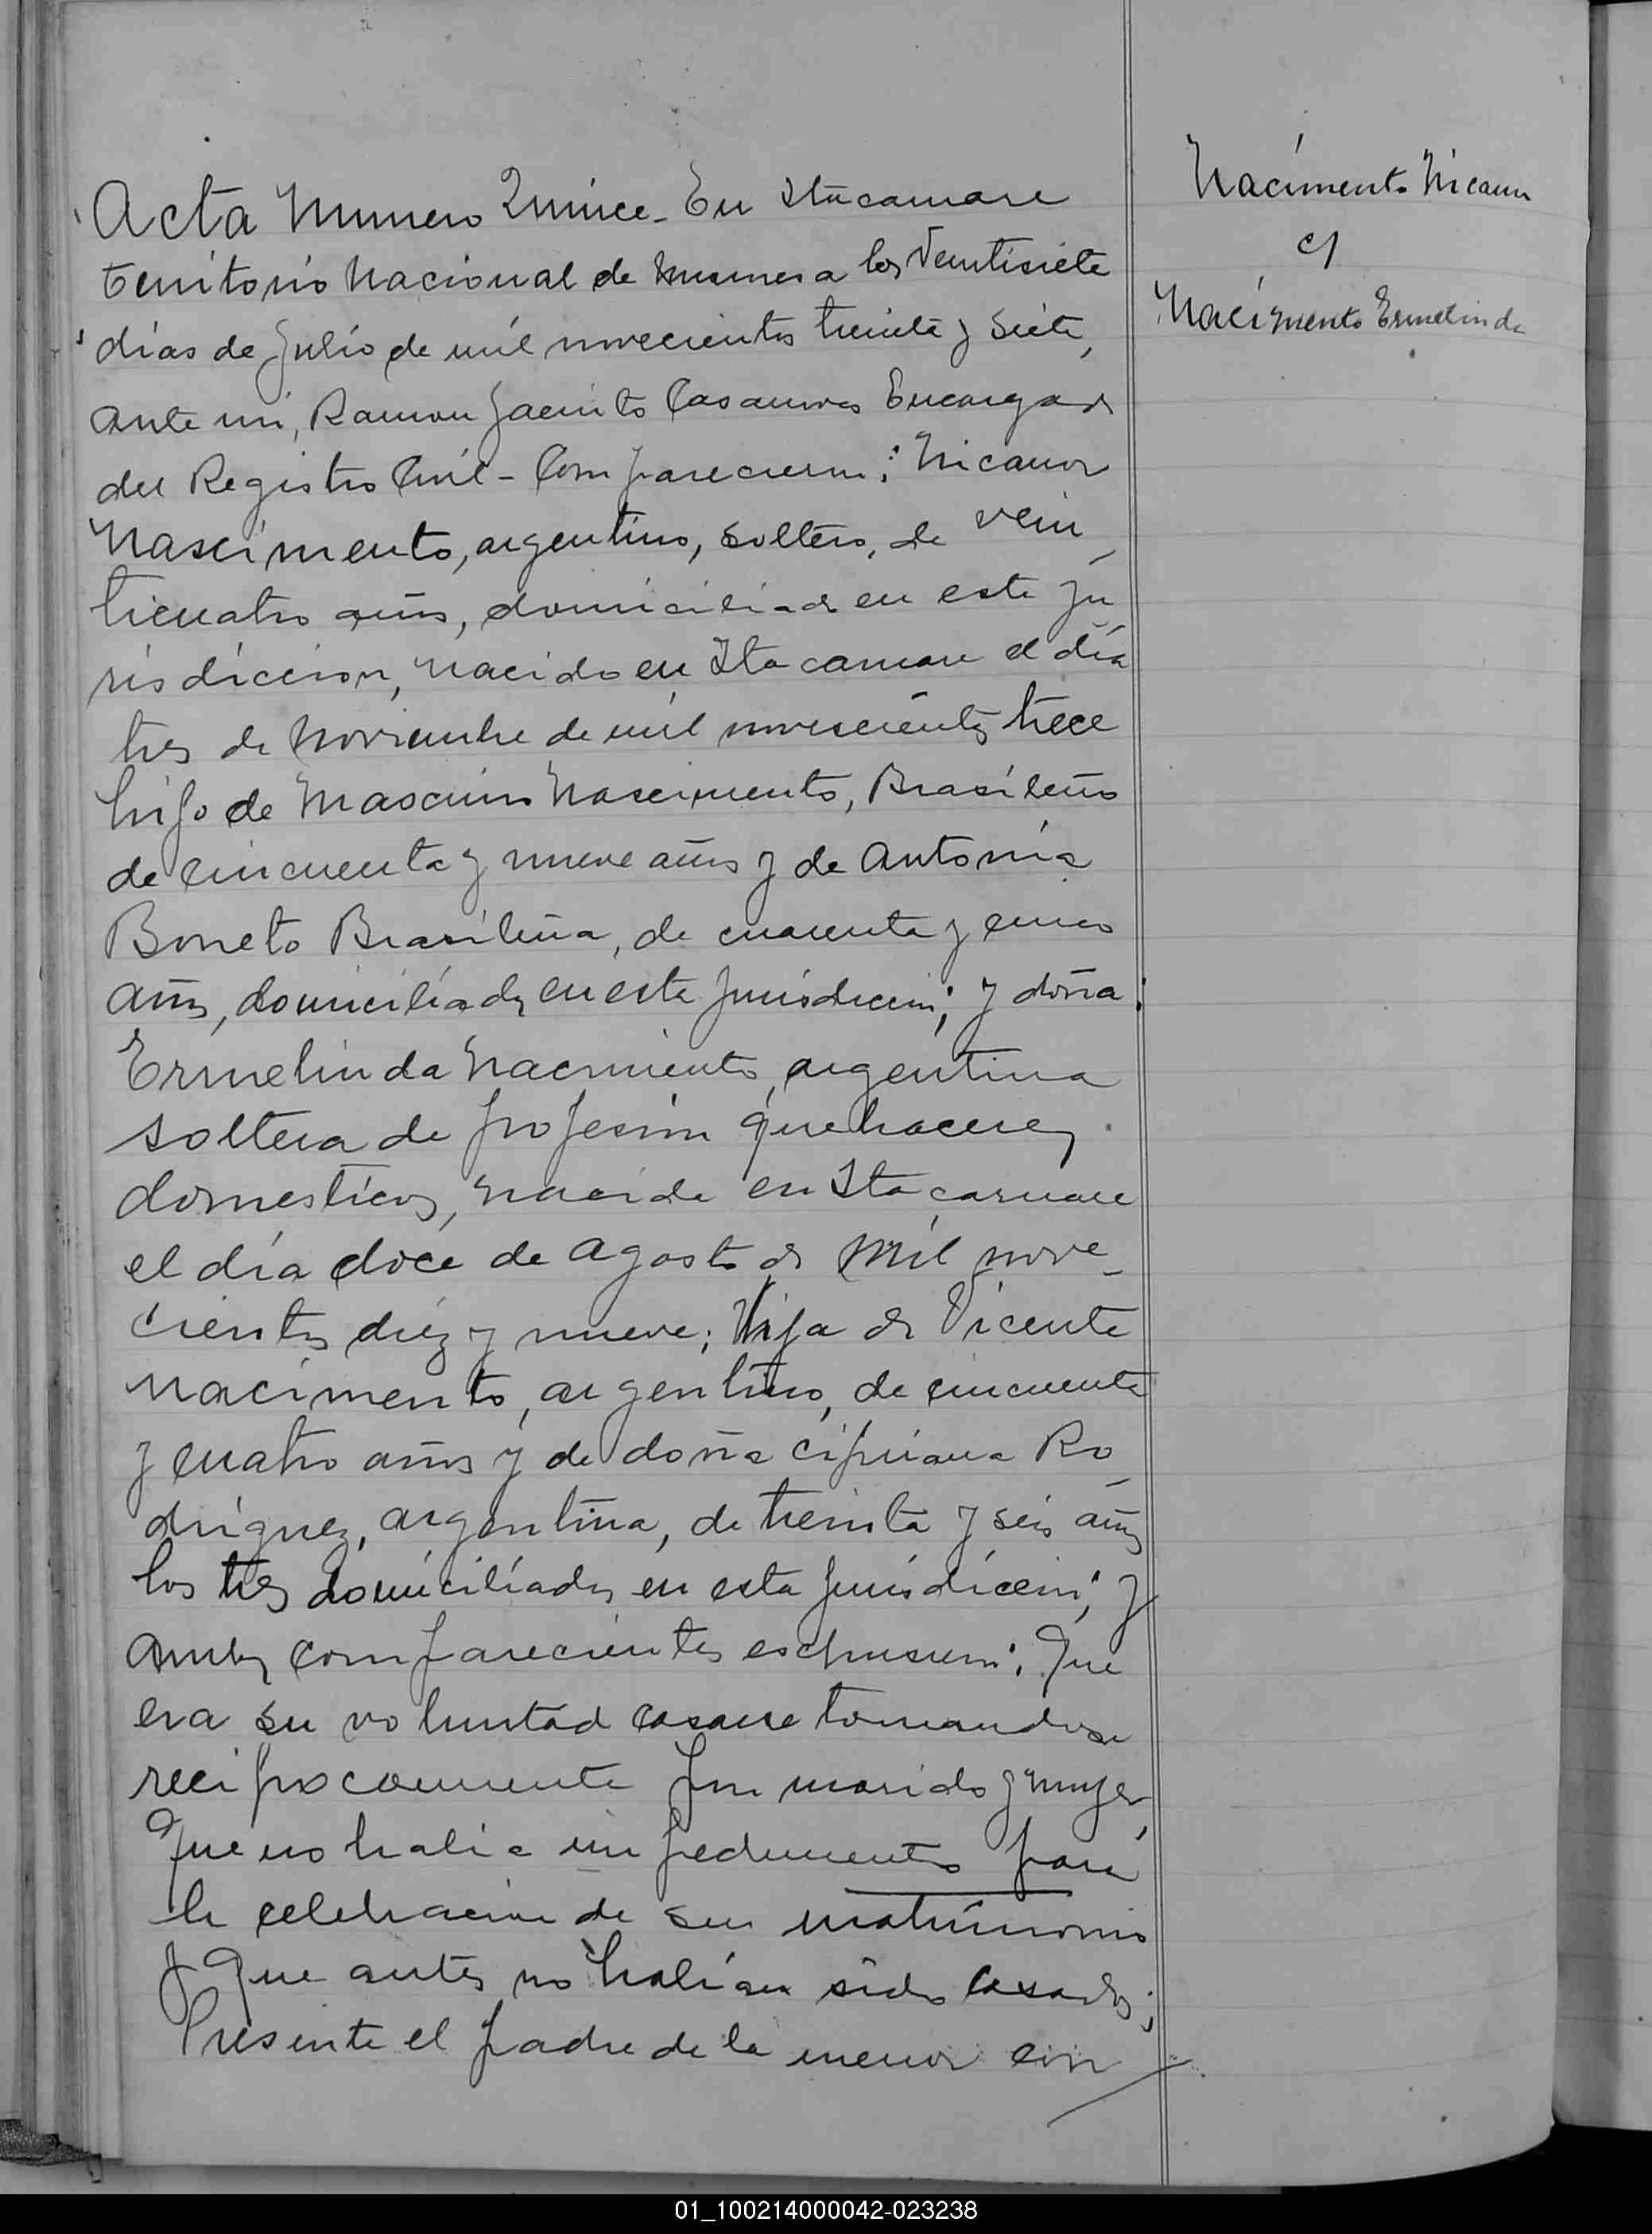 Acta Numero Quince - En Itacaruare
territorio Nacional de Misiones a los Veintisiete
días de Julio de mil novecientos treinta y siete,
ante mi, Ramon Jacinto Casanova Encargado
del Registro Civil - Comparecieron: Nicanor
Nascimento, argentino, soltero, de vein
ticuatro años, domiciliado en este ju
risdiccion, nacido en Itacaruare el día
tres de Noviembre de mil novescientos trece
hijo de Mascimo Nascimento, Brasileño
de cincuenta y nueve años y de Antonia
Boneto Brasileña, de cuarenta y cinco
años, domiciliados en esta jurisdiccion; y doña:
Ermelinda Nacimiento, argentina
soltera de profesión quehaceres
domesticos, nacida en Itacaruare
el día doce de Agosto de mil nove-
cientos diez y nueve; Hija de Vicente
nacimento, argentino, de cincuenta
y cuatro años y de doña Cipriana Ro
driguez, argentina, de treinta y seis años
los tres domiciliados en esta jurisdiccion; y
ambos comparecientes espusieron: Que
era su voluntad casarse tomandose
reciprocamente por marido y mujer,
Que no habia impedimento para
la celebracion de su matrimonio
y Que antes no habían sido casados;
Presente el padre de la menor con
Nacimento Nicanor
c/
Nacimento Ermelinda
01_100214000042-023238